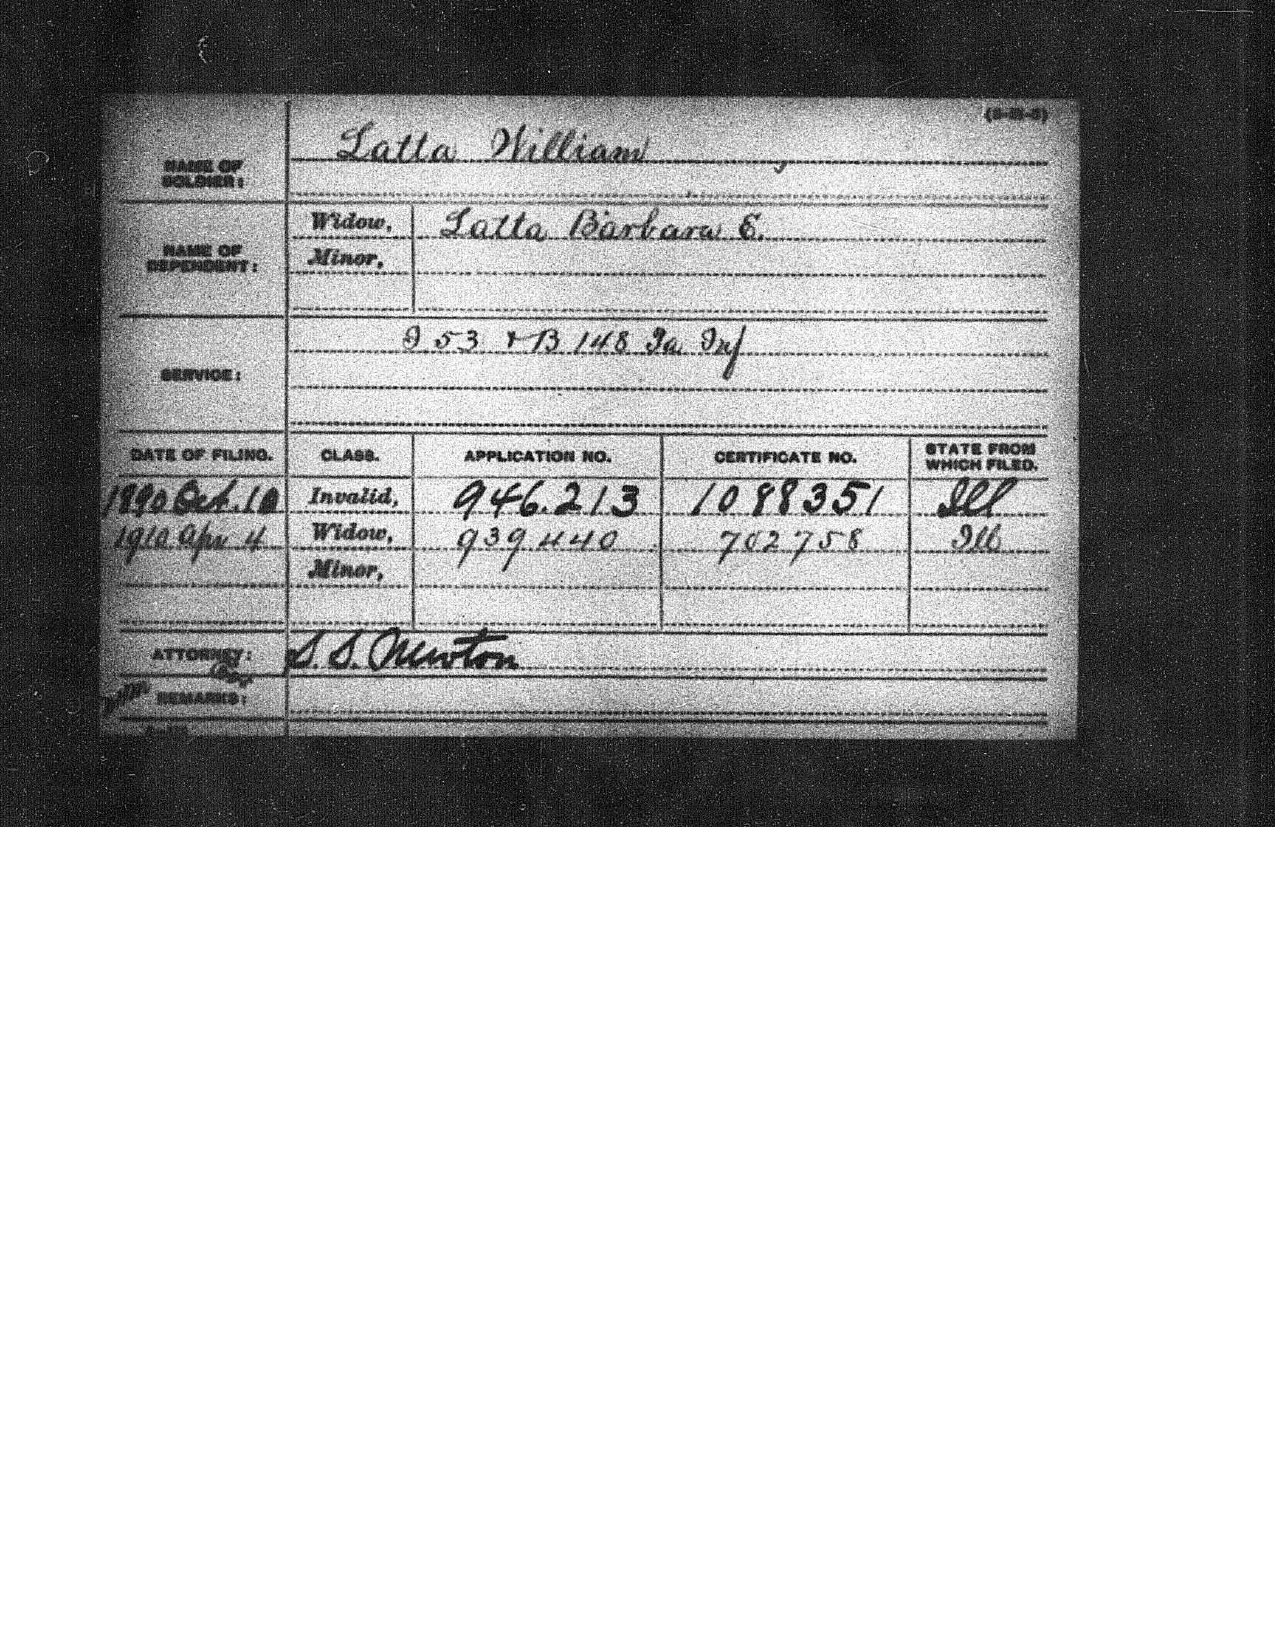 (3-111-3)
NAME OF SOLDIER: Latta William
NAME OF DEPENDENT: Widow, Latta Barbara E.
Minor,
SERVICE: I 53 & B 148 Ia Inf
DATE OF FILING. CLASS. APPLICATION NO. CERTIFICATE NO. STATE FROM WHICH FILED.
1890 Oct. 10 Invalid, 946.213 1088351 Ill
1910 Apr 4 Widow, 939440 702758 Ill
Minor,
ATTORNEY: S. S. Newton
REMARKS: